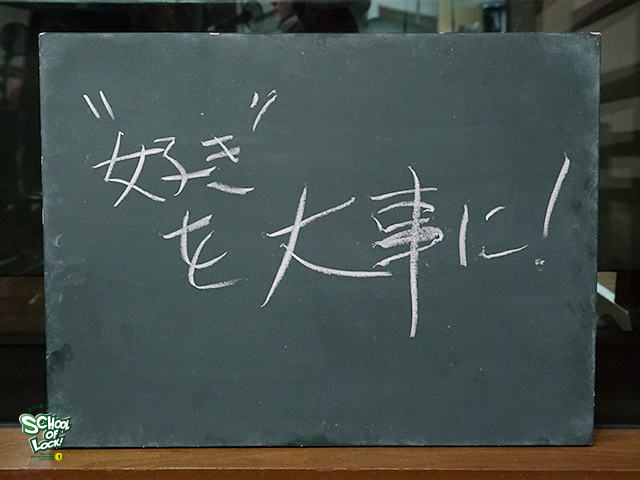 "好き"
を大事に!
SCHOOL
OF
LOCK!